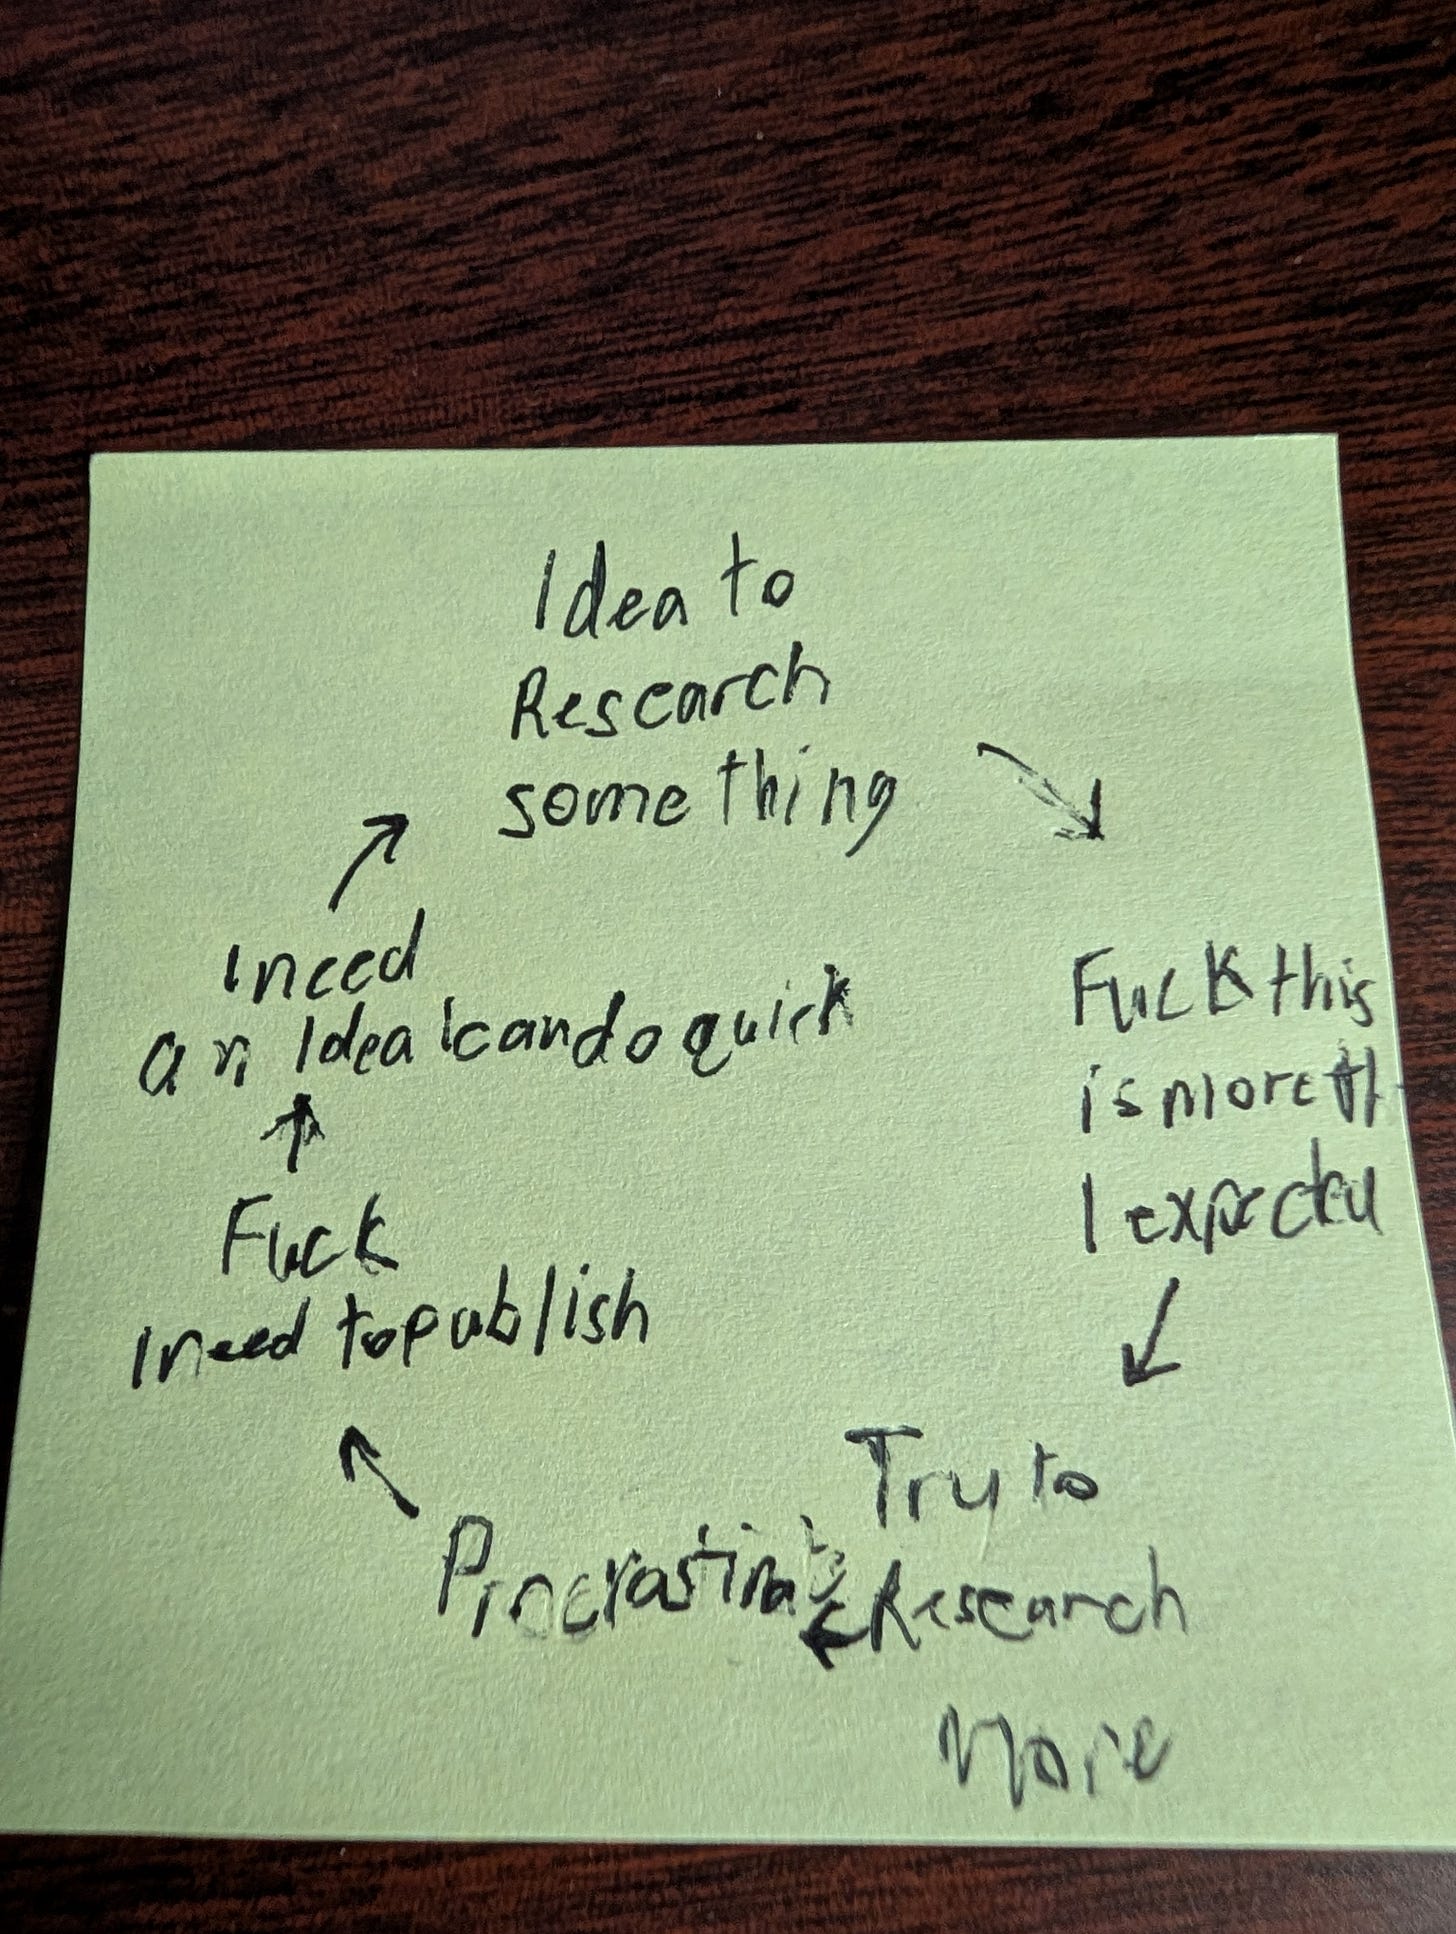 Idea to
Research
something
Fuck this
is more th
I expected
Try to
Research
More
Procrastinate
Fuck
I need to publish
I need
an Idea I can do quick